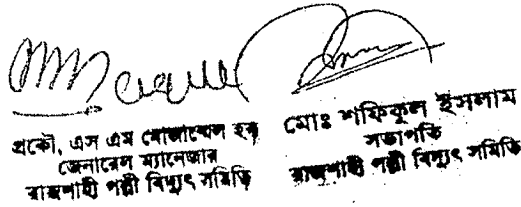 প্রকৌ, এস এম মোজাম্মেল হক
জেনারেল ম্যানেজার
রাজশাহী পল্লী বিদ্যুৎ সমিতি
মোঃ শফিকুল ইসলাম
সভাপতি
রাজশাহী পল্লী বিদ্যুৎ সমিতি